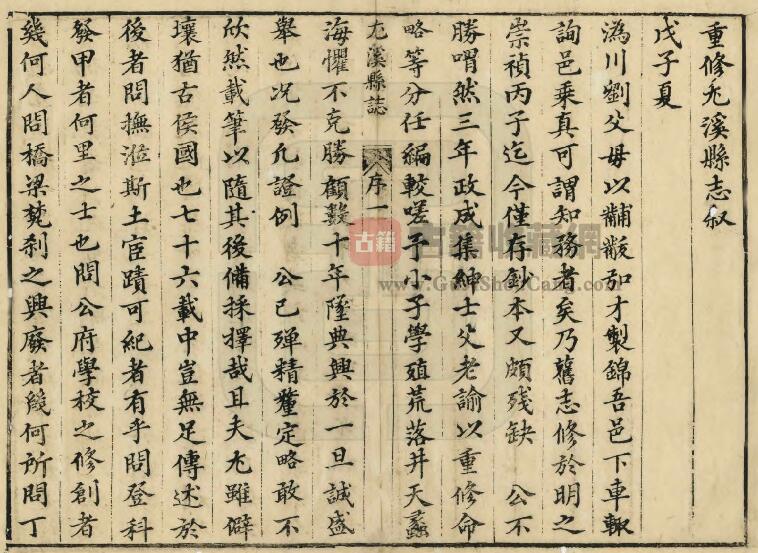 重修尤溪縣志叙
戊子夏
溈川劉父母以黼黻加才製錦吾邑下車輙
詢邑乘真可謂知務者矣乃舊志修於明之
崇禎丙子迄今僅存鈔本又頗残缺 公不
勝喟然三年政成集紳士父老諭以重修命
略等分任編較嗟予小子學殖荒落井天蠡
尤溪縣誌 序一
海懼不克勝顧數十年墜典興於一旦誠盛
舉也况發凡證例 公已殫精釐定略敢不
欣然載筆以隨其後備採擇哉且夫尤雖僻
壤猶古侯國也七十六載中豈無足傳述於
後者問撫涖斯土宦蹟可紀者有乎問登科
發甲者何里之士也問公府學校之修創者
幾何人問橋梁梵刹之興廢者幾何所問丁
古籍收藏網
古籍